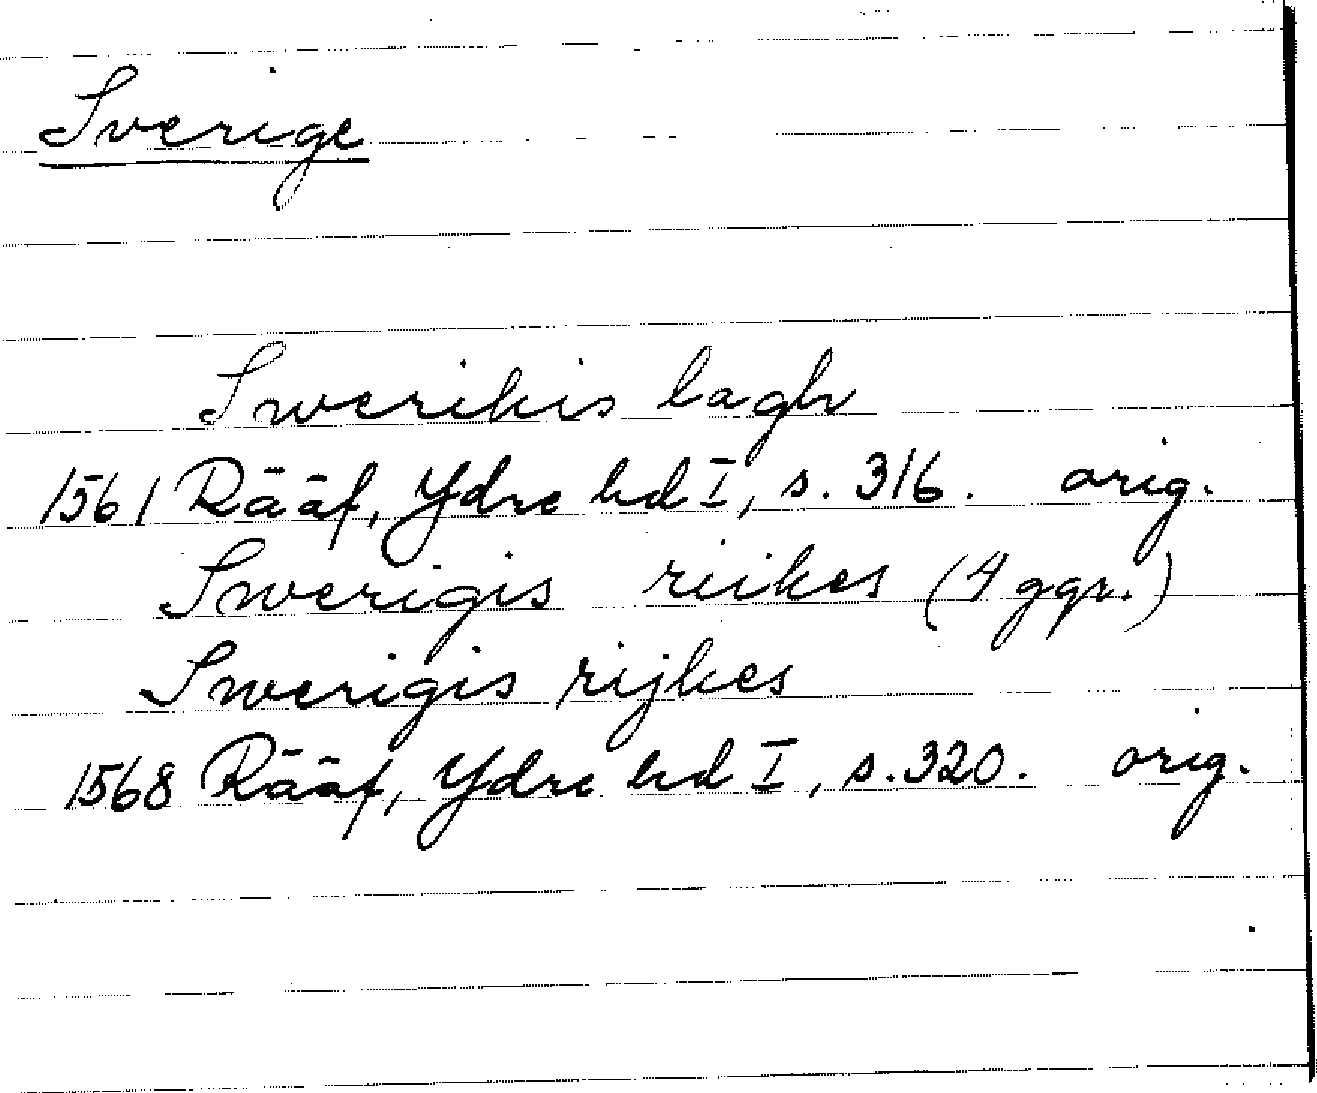 Sverige
Swerikis lagh
1561 Rääf, Ydre bd I, s. 316. orig.
Swerigis riikes (4 ggr.)
Swerigis rijkes
1568 Rääf, Ydre bd I, s. 320. orig.